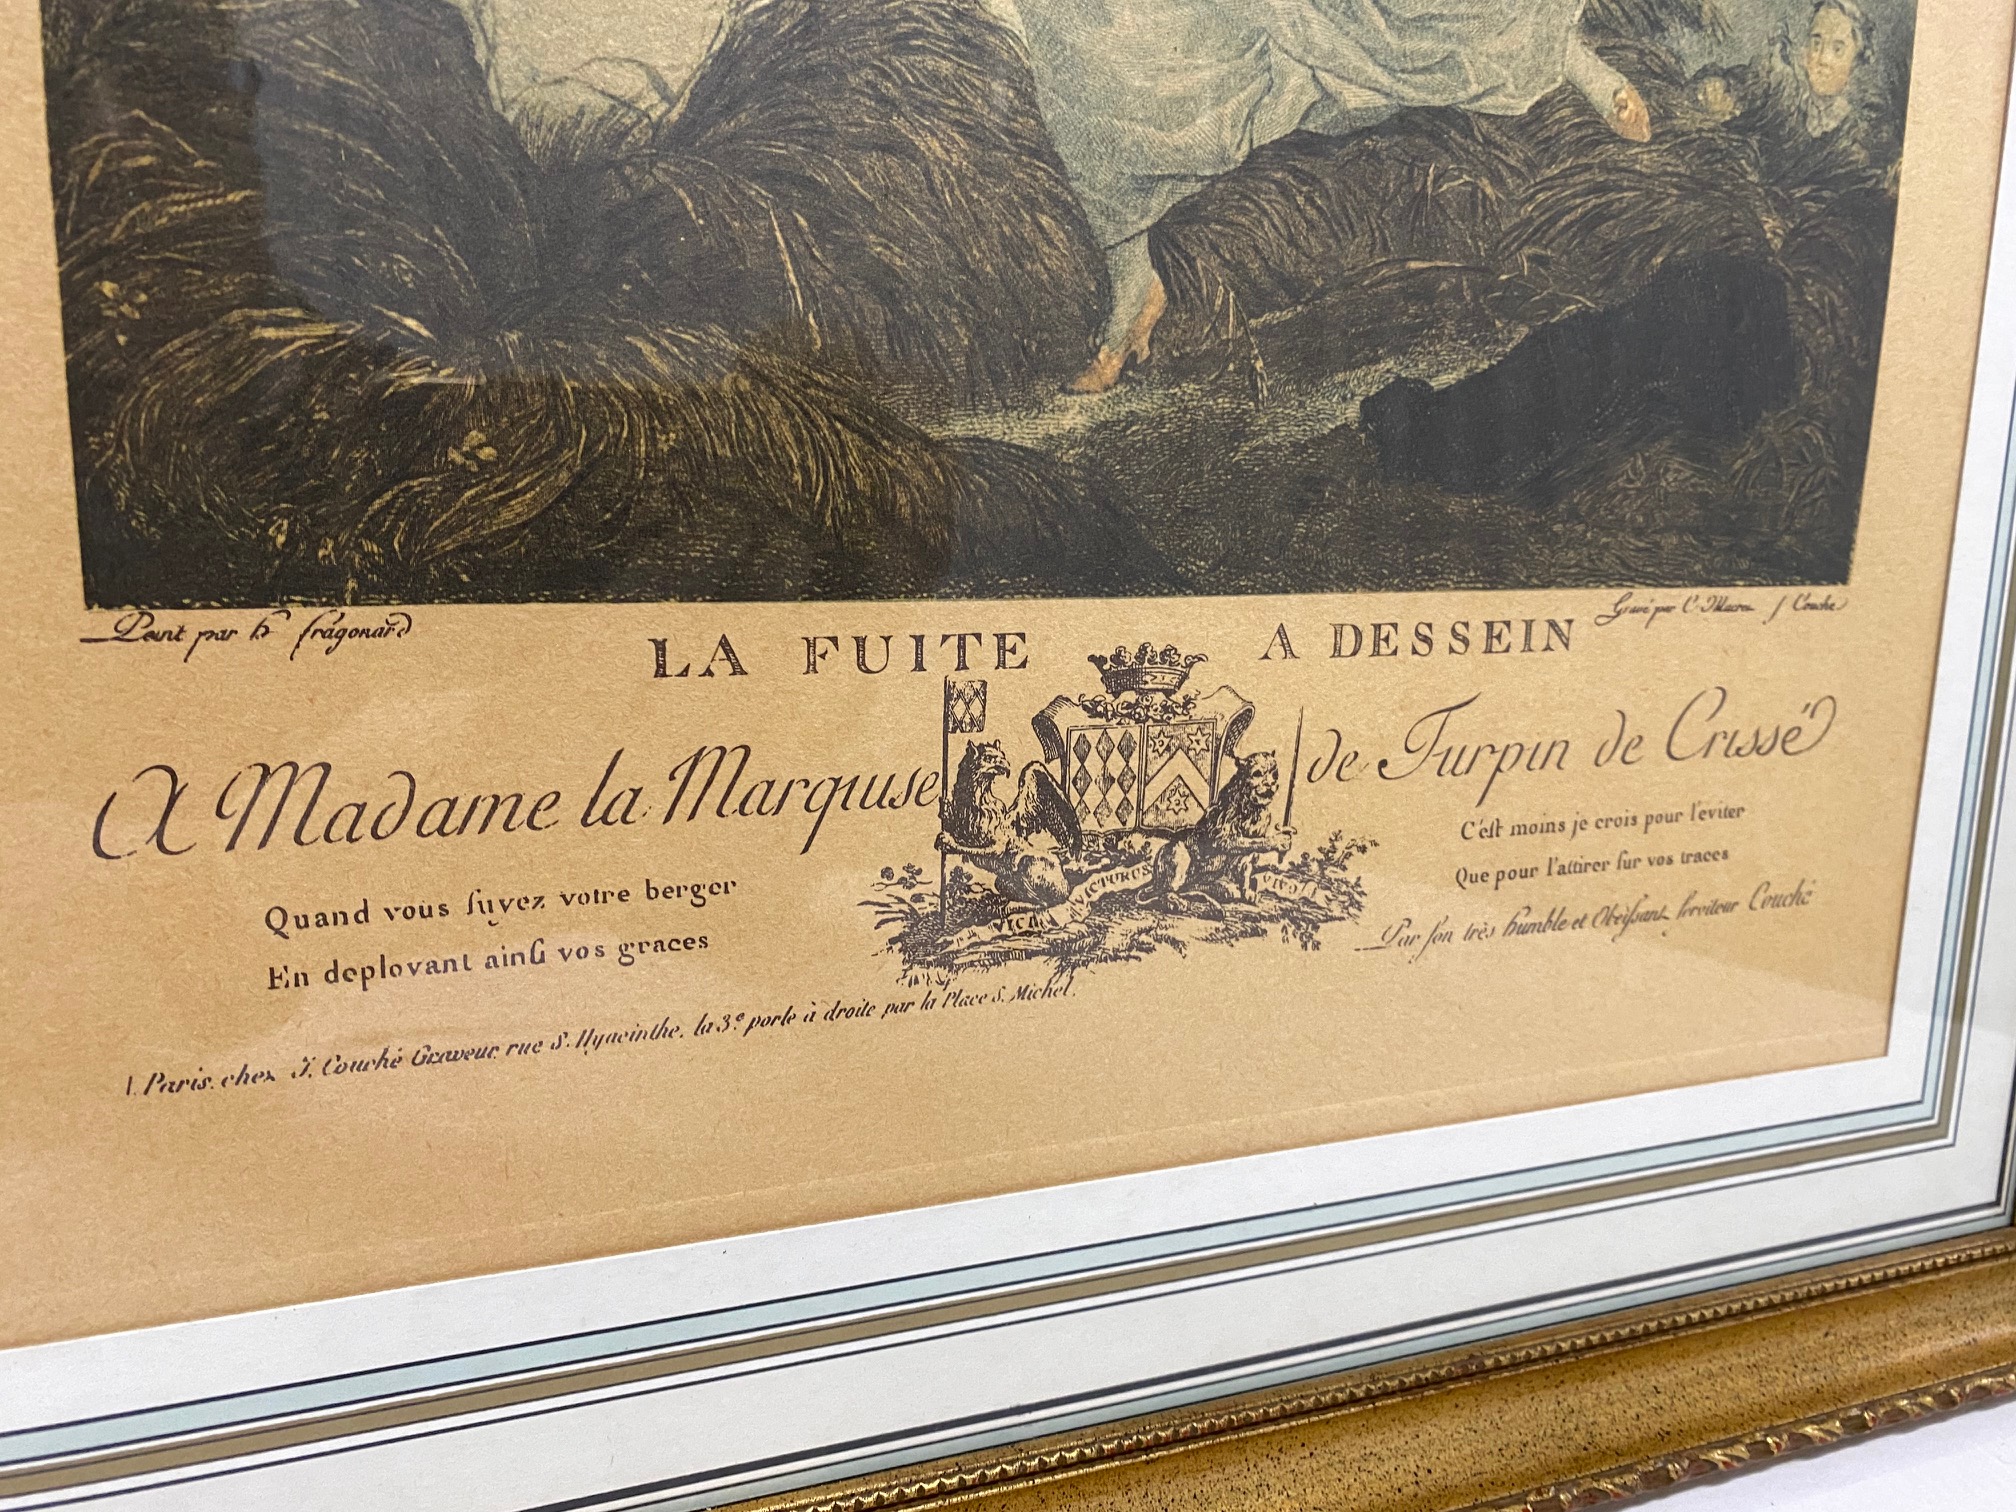 Peint par h. fragonard
Gravé par C. Macret J Couché
LA FUITE A DESSEIN
A Madame la Marquise de Turpin de Crissé
Quand vous fuyez votre berger
En deployant ainsi vos graces
C'est moins je crois pour l'eviter
Que pour l'attirer sur vos traces
VICI VICTURUS VIVO
Par son très humble et Obeissant serviteur Couché
A Paris, chez J. Couché Graveur, rue S. Hyacinthe, la 3.e porte à droite par la Place S. Michel.